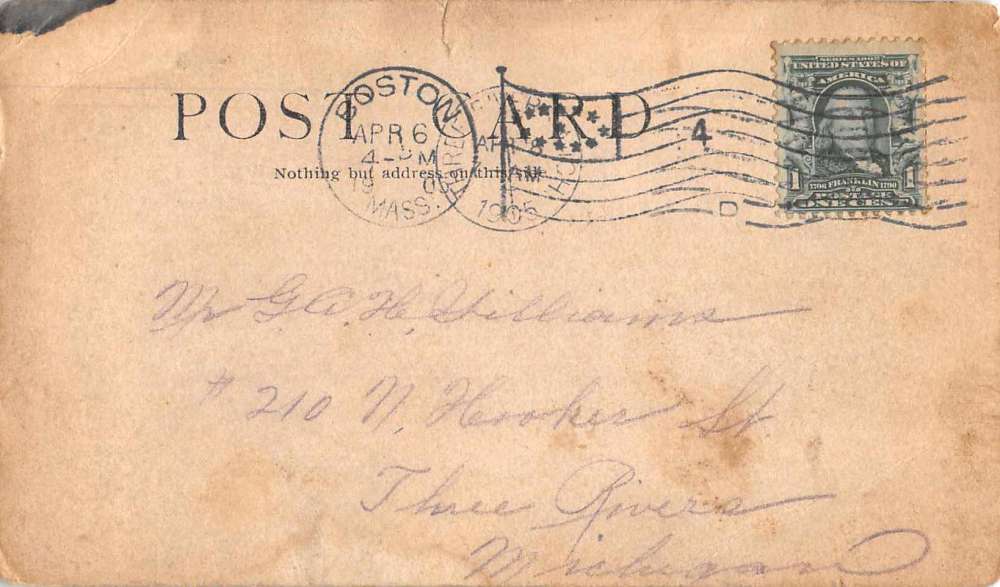 POST CARD
Nothing but address on this side
BOSTON
APR 6
4- M
MASS.
THREE
APR
AM
1905
4
D
SERIES 1902
UNITED STATES OF
AMERICA
1
1706 FRANKLIN 1790
POSTAGE
ONE CENT
Mr G. A. H. Williams
# 210 N. Hooker St.
Three Rivers
Michigan